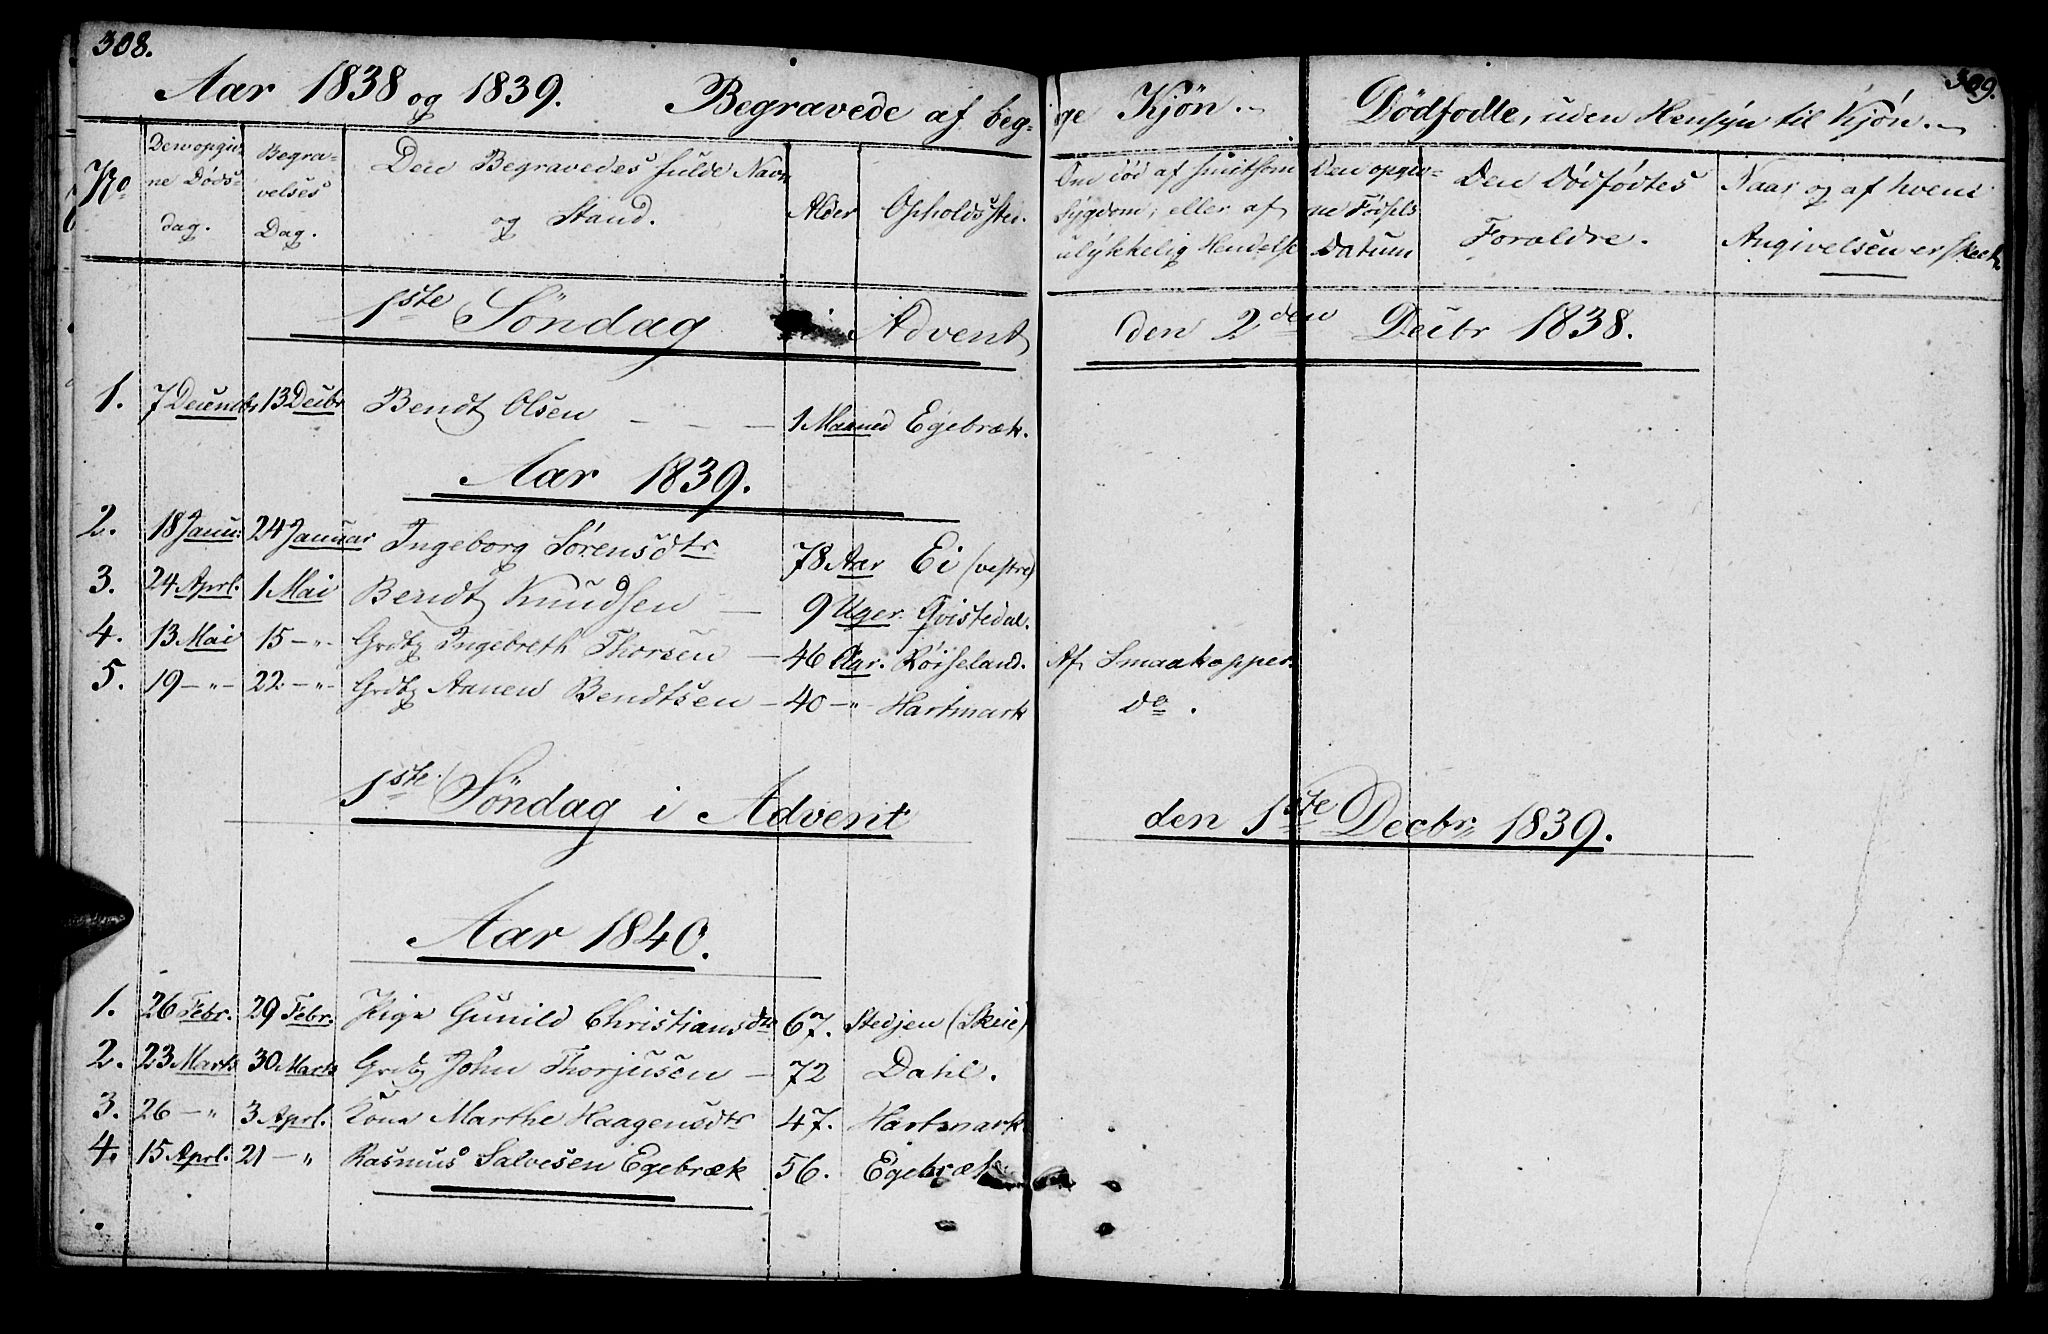 308.
Aar 1838 og 1839. Begravede af beg-
No
Den opgiv-
ne Døds-
dag.
Begra-
velses
Dag.
Den Begravedes fulde Navn
og Stand.
Alder
Opholdssted.
1ste Søndag i Advent
1. 7 Decembr 13 Decbr Bendt Olsen - - - 1 Maaned Egebræk.
Aar 1839.
2. 18 Janu: 24 Januar Ingeborg Sørensdtr 78 Aar Ei (vestre)
3. 24 Aprl. 1 Mai Bendt Knudsen - 9 Uger. Qvistedal.
4. 13 Mai 15 - " - Grdbg Ingebreth Thorsen - 46 Aar. Røiseland.
5. 19 - " - 22 - " - Grdbg Aanen Bendtsen - 40 - " Hartmark
1ste Søndag i Advent
Aar 1840.
1. 26 Febr. 29 Febr. Pige Gunild Christiansdtr 67. Stedjen (Skeie)
2. 23 Marts 30 Marts Grdbg John Thorjusen - 72 Dahl.
3. 26 - " 3 Aprl. Kone Marthe Haagensdtr 47. Hartmark
4. 15 Aprl. 21 - " Rasmus Salvesen Egebræk 56. Egebræk
309.
ge Kjøn. - Dödfödte, uden Hensyn til Kjøn. -
Om död af smitsom
Sygdom, eller af
ulykkelig Hendelse
Den opgiv-
ne Födsels
Datum
Den Dödfödtes
Forældre.
Naar og af hvem
Angivelsen er skeet.
den 2den Decbr 1838.
Af Smaakopper.
do.
den 1ste Decbr. 1839.